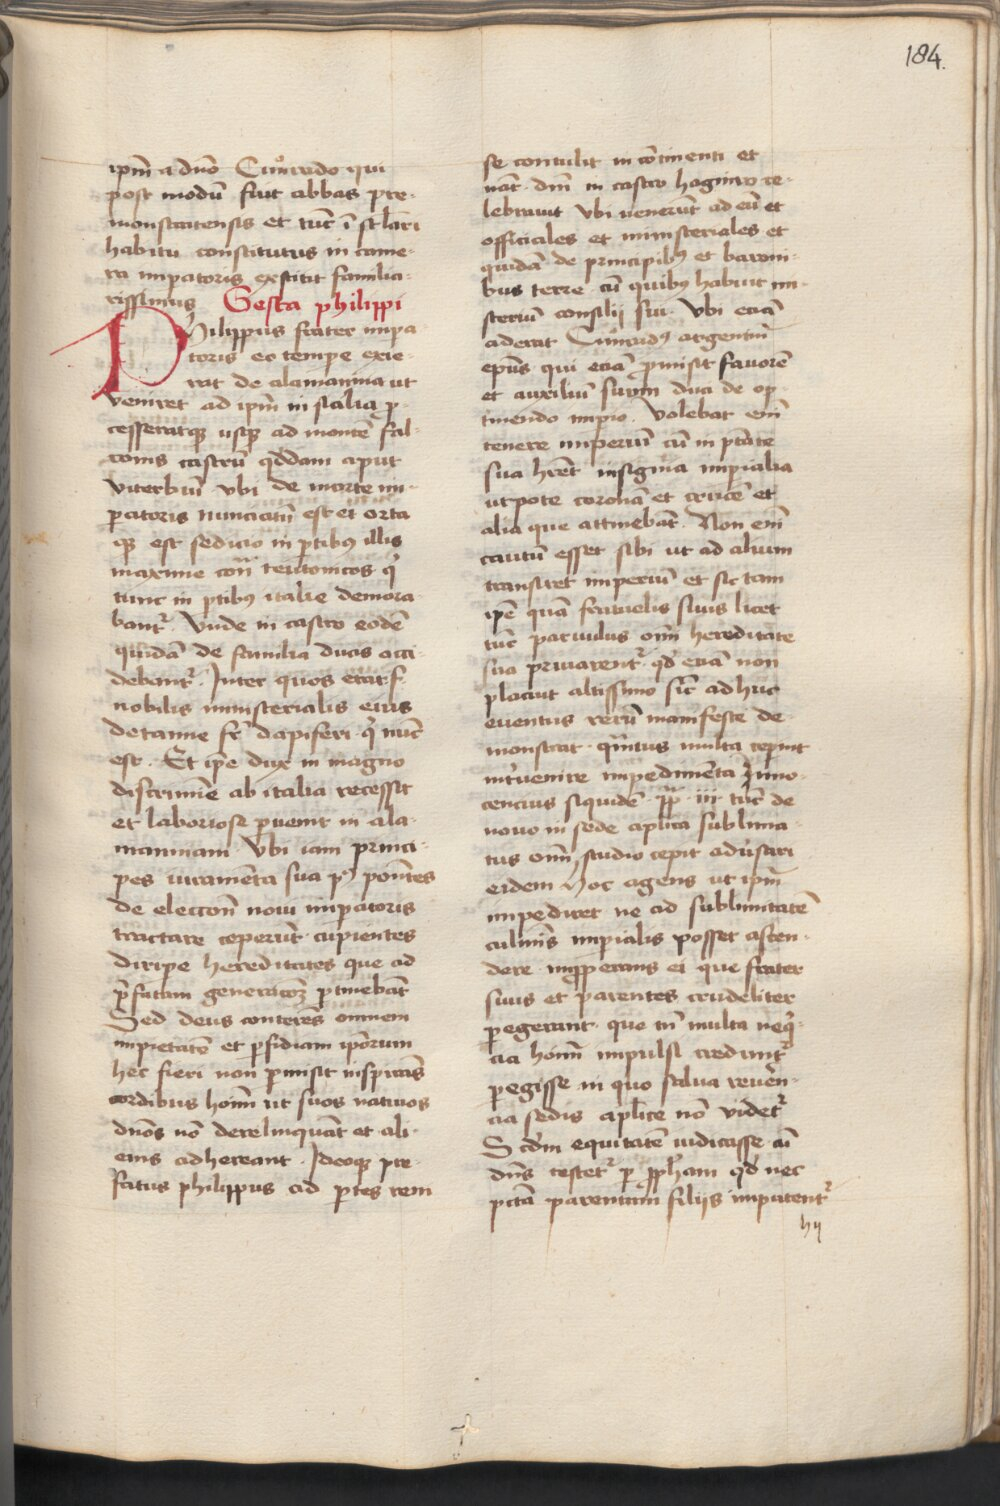 184.
ipm̄ a dn̄o Cůnrado qui
post modū fuit abbas pre-
monstratensis et tūc ī sclari
habitu constitutus in came-
ra impatoris exstitit familia-
rissimus Gesta philippi
Philippus frater impa-
toris eo tempe exie-
rat de alamannia ut
veniret ad ipm̄ in sicilia p-
cesseratqȝ usqȝ ad montē fal-
conis castrū qddam aput
viterbiū vbi de morte im-
patoris nunciatū est et orta
qȝ est sedicio in ptibꝰ illis
maxime cont̄ teutonicos q̇
tunc in ptibꝰ italie demora-
bant᷑ Vnde in castro eodē
quidā de familia ducis occi-
debant᷑ Inter quos erat f.
nobilis ministerialis eius
de tanne fr̄ dapiferi q̇ nūc
est. Et ipe dux in magno
discrimīe ab italia recessit
et laboriose puenit in ala-
manniam Vbi iam princi-
pes iuramēta sua pꝰ ponētes
de eleccon̄ noui impatoris
tractare ceperūt cupientes
diripe hereditates que ad
p̄fatam generacōȝ ptinebāt
Sed deus conterēs omnem
impietatē et pfidiam ipōrum
hec fieri non pmisit inspirās
cordibus hom̄ ut suos natiuos
dn̄os nō derelinquāt et ali-
enis adhereant. Ideoqȝ pre-
fatus philippus ad ptes rem
se contulit in cōtinenti et
nāt. dm̄ in castro haginow ce-
lebrauit vbi uenerūt ad eū et
officiales et ministeriales et
quidā de principibꝰ et baroni-
bus terre cū quibꝰ habuit mi-
steriū consilij sui. Vbi eciā
aderat Cůnradꝰ argentin̄
epūs qui eciā pmisit fauorē
et auxiliū suum duci de op-
tinendo impio. Volebat em̄
tenere imperiū cū in ptāte
sua hr̄et insignia impialia
utpote coronā et crucē et
alia que attinebāt. Non em̄
tautū esset sibi ut ad alium
transiret imperiū et sic tam
ipē quā fratuelis suus licet
tūc paruulus om̄i hereditate
sua priuarent᷑ qd eciā non
placuit altissimo sic̄ adhuc
euentus rerū manifeste de-
monstrat quīuis multa cepint
int̄uenire impedimēta Inno-
cencius siquidē pp̄ iii tūc de
nouo in sede aplica sublima-
tus om̄i studio cepit adusari
eidem Hoc agens ut ipm̄
impediret ne ad sublimitatē
culminis impialis posset ascen-
dere impperans ei que frater
suus et parentes crudeliter
pegerant. que tn̄ multa neq̇-
cia hoīm impulsi credunt᷑
pegisse in quo salua reueren-
cia sedis aplice nō videt᷑
Scdm equitatē iudicasse cū
dn̄s testet᷑ p pph̄am qd nec
pctā parentum filijs imputent᷑
hij